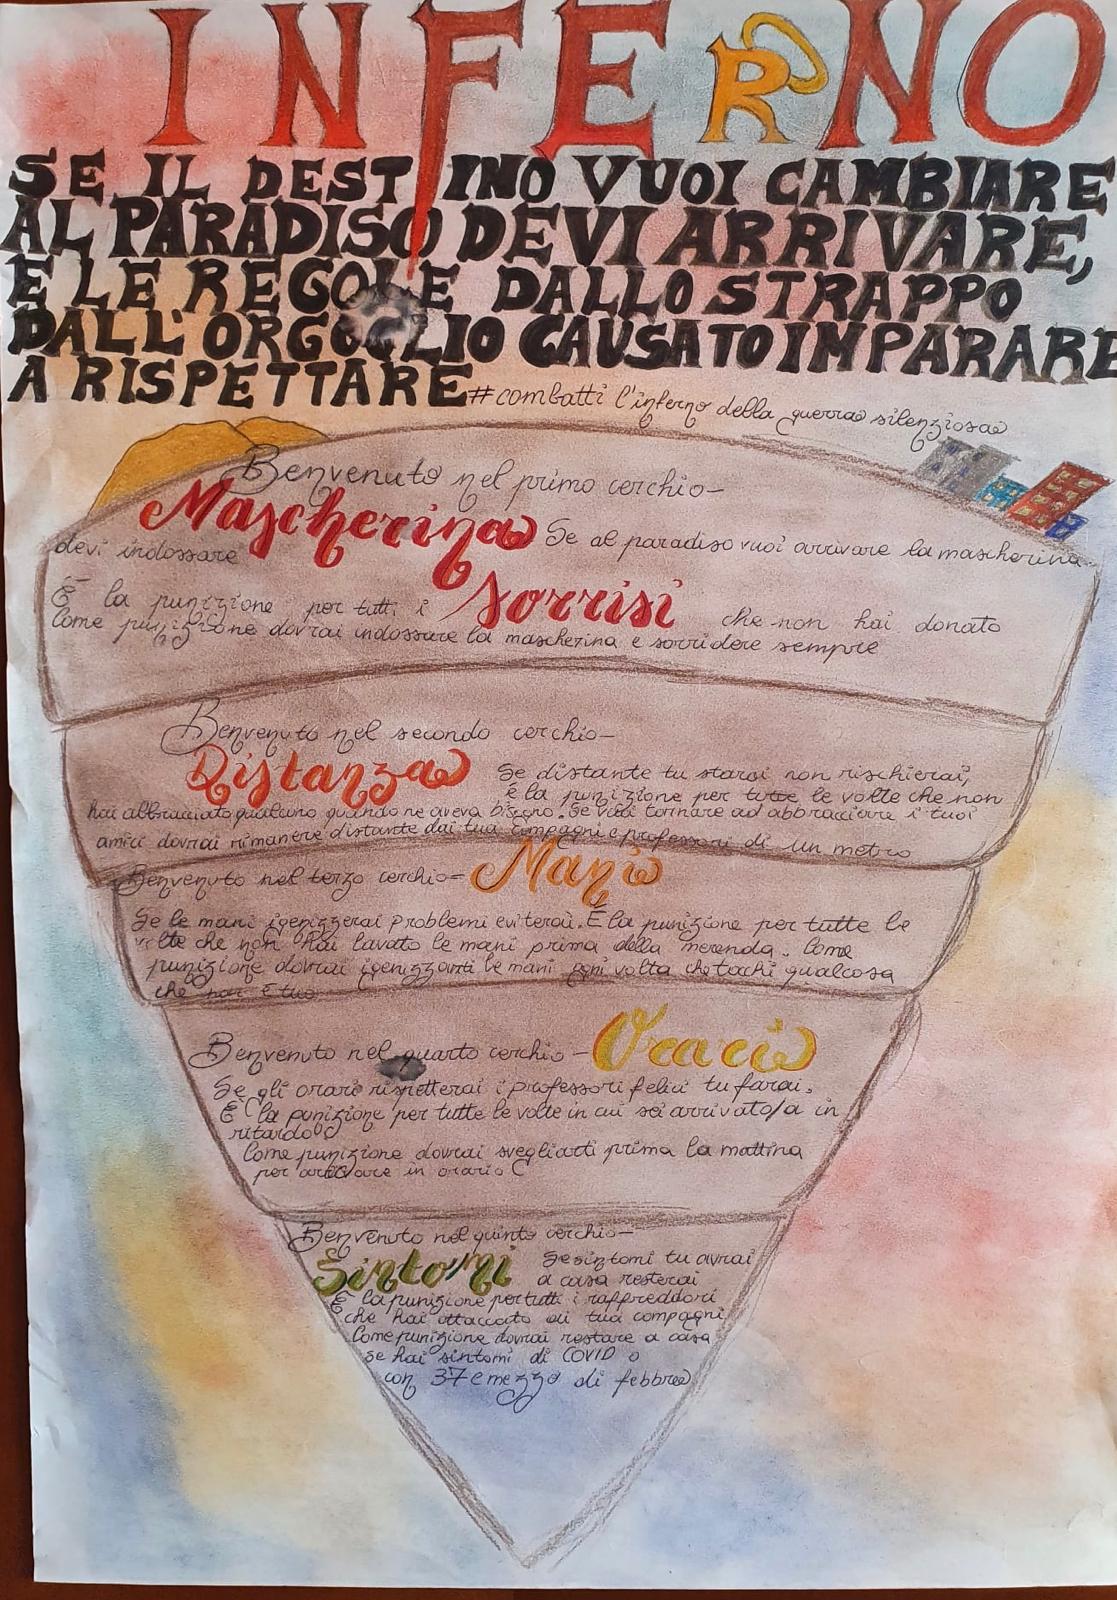 INFERNO
SE IL DESTINO VUOI CAMBIARE
AL PARADISO DEVI ARRIVARE,
E LE REGOLE DALLO STRAPPO
DALL'ORGOGLIO CAUSATO IMPARARE
A RISPETTARE #combatti l'inferno della guerra silenziosa
Benvenuto nel primo cerchio-
Mascherina Se al paradiso vuoi arrivare la mascherina
devi indossare
È la punizione per tutti i sorrisi che non hai donato
Come punizione dovrai indossare la mascherina e sorridere sempre
Benvenuto nel secondo cerchio-
Distanza Se distante tu starai non rischierai,
è la punizione per tutte le volte che non
hai abbracciato qualcuno quando ne aveva bisogno. Se vuoi tornare ad abbracciare i tuoi
amici dovrai rimanere distante dai tuoi compagni e professori di un metro
Benvenuto nel terzo cerchio- Mani
Se le mani igenizzerai problemi eviterai. È la punizione per tutte le
volte che non hai lavato le mani prima della merenda. Come
punizione dovrai igenizzarti le mani ogni volta che tochi qualcosa
che non è tuo
Benvenuto nel quarto cerchio- Orari
Se gli orari rispetterai i professori felici tu farai.
È la punizione per tutte le volte in cui sei arrivato/a in
ritardo
Come punizione dovrai svegliarti prima la mattina
per arrivare in orario
Benvenuto nel quinto cerchio-
Sintomi Se sintomi tu avrai
a casa resterai
È la punizione per tutti i raffreddori
che hai attaccato ai tuoi compagni
Come punizione dovrai restare a casa
se hai sintomi di COVID o
con 37 e mezzo di febbre